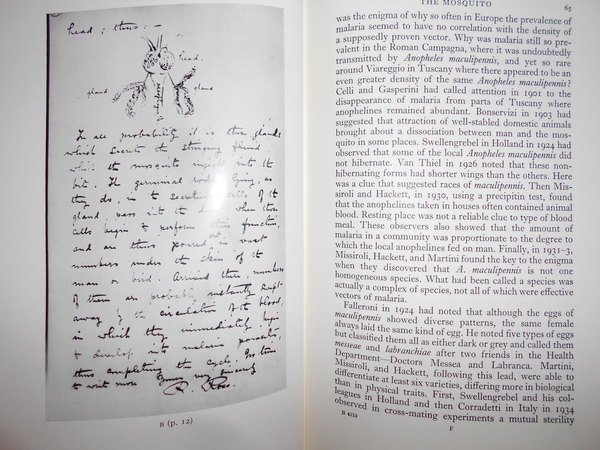 head; thus: -
head.
gland
gland
In all probability it is these glands
which secrete the stinging fluid
which the mosquito injects into the
bite. The germinal rods, lying as
they do, in the secreting cells of the
gland, pass into the duct when these
cells begin to perform their function,
and are thus poured in vast
numbers under the skin of the
man or bird. Arrived there, numbers
of them are probably instantly swept
away by the circulation of the blood,
in which they immediately begin
to develop into malaria parasites,
thus completing the cycle. No time
to write more. Yours very sincerely
R. Ross.
B (p. 12)
THE MOSQUITO 65
was the enigma of why so often in Europe the prevalence of
malaria seemed to have no correlation with the density of
a supposedly proven vector. Why was malaria still so pre-
valent in the Roman Campagna, where it was undoubtedly
transmitted by Anopheles maculipennis, and yet so rare
around Viareggio in Tuscany where there appeared to be an
even greater density of the same Anopheles maculipennis?
Celli and Gasperini had called attention in 1901 to the
disappearance of malaria from parts of Tuscany where
anophelines remained abundant. Bonservizi in 1903 had
suggested that attraction of well-stabled domestic animals
brought about a dissociation between man and the mos-
quito in some places. Swellengrebel in Holland in 1924 had
observed that some of the local Anopheles maculipennis did
not hibernate. Van Thiel in 1926 noted that these non-
hibernating forms had shorter wings than the others. Here
was a clue that suggested races of maculipennis. Then Mis-
siroli and Hackett, in 1930, using a precipitin test, found
that the anophelines taken in houses often contained animal
blood. Resting place was not a reliable clue to type of blood
meal. These observers also showed that the amount of
malaria in a community was proportionate to the degree to
which the local anophelines fed on man. Finally, in 1931-3,
Missiroli, Hackett, and Martini found the key to the enigma
when they discovered that A. maculipennis is not one
homogeneous species. What had been called a species was
actually a complex of species, not all of which were effective
vectors of malaria.
Falleroni in 1924 had noted that although the eggs of
maculipennis showed diverse patterns, the same female
always laid the same kind of egg. He noted five types of eggs
but classified them all as either dark or grey and called them
messeae and labranchiae after two friends in the Health
Department—Doctors Messea and Labranca. Martini,
Missiroli, and Hackett, following this lead, were able to
differentiate at least six varieties, differing more in biological
than in physical traits. First, Swellengrebel and his col-
leagues in Holland and then Corradetti in Italy in 1934
observed in cross-mating experiments a mutual sterility
B 4529 F